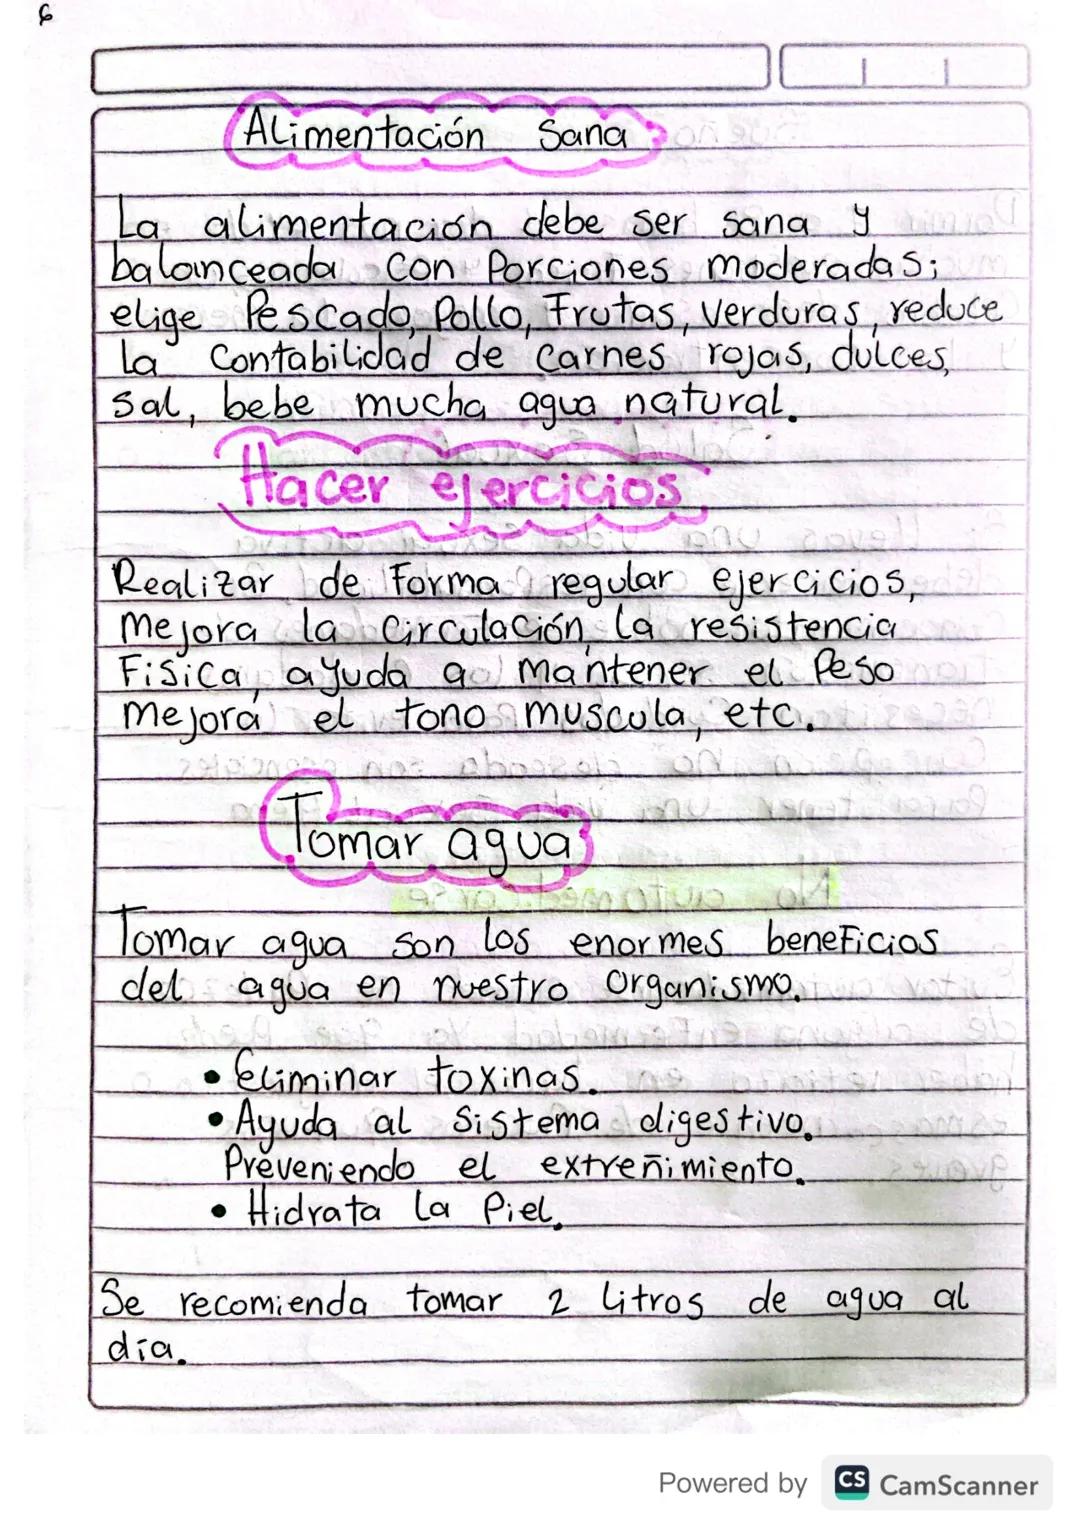 6
Alimentación Sana
La alimentación debe ser sana y
balanceada con Porciones moderadas;
elige Pescado, Pollo, Frutas, verduras, reduce
la Contabilidad de carnes rojas, dulces,
sal, bebe mucha agua natural.
Hacer ejercicios
Realizar de Forma regular ejercicios,
mejora la Circulación, la resistencia
Fisica, ayuda a mantener el Peso
mejora el tono muscula, etc.
Tomar agua
Tomar agua son los enormes beneficios
del agua en nuestro Organismo.
• Eliminar toxinas.
• Ayuda al Sistema digestivo.
Preveniendo el extreñimiento.
• Hidrata la Piel.
Se recomienda tomar 2 litros de agua al
día.
Powered by CS CamScanner